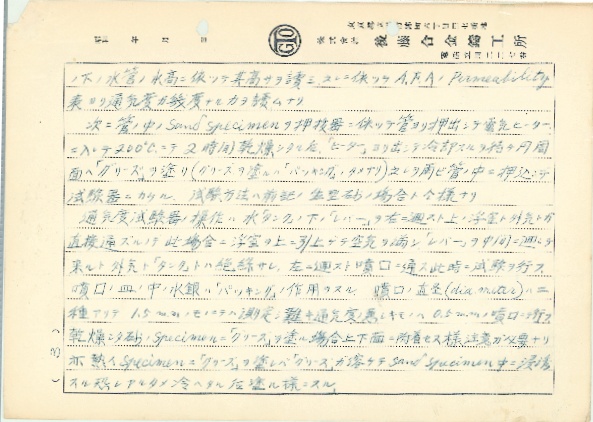 昭 年 月 日
GTO
株式会社 後藤合金鋳工所
ノ下ノ水管ノ水高ニ依ッテ其高サヲ読ミ、コレニ依ッテ A.F.A ノ Permeability
表ヨリ通気度ガ幾度ナルカヲ読ムナリ
次ニ管ノ中ノ Sand specimen ヲ押抜器ニ依ッテ管ヨリ押出シテ電気ヒーター
ニ入レテ200℃ニテ2時間乾燥シタル后「ヒーター」ヨリ出シテ冷却スルヲ待ッテ周
面ヘ「グリース」ヲ塗リ(グリースヲ塗ルハ「パッキング」ノタメナリ)之レヲ再ビ管ノ中ニ押込ンデ
試験器ニカケル、試験方法ハ前記ノ生型砂ノ場合ト同様ナリ
通気度試験器ノ操作ハ水「タンク」ノ下ノ「レバー」ヲ右ニ廻スト上ノ浮室ト外気トガ
直接通ズルノデ此場合ニ浮室ヲ上ニ引上ゲテ空気ヲ満シ「レバー」ヲ中間ニ廻シテ
来ルト外気ト「タンク」トハ絶縁サレ、左ニ廻スト噴口ニ通ズ此時ニ試験ヲ行フ
噴口ノ皿ノ中ノ水銀ハ「パッキング」ノ作用ヲスル 噴口ノ直径(diameter)ハ二
種アリテ 1.5 m.m ノモノニテハ測定ノ難キ通気度ノ悪シキモノハ 0.5 m.m ノ噴口ニテ行フ
乾燥シタ砂ノ Specimen ニ「グリース」ヲ塗ル場合上下面ニ附着セヌ様注意ガ必要ナリ
亦熱イ Specimen ニ「グリース」ヲ塗レバ「グリース」ガ溶ケテ Sand specimen 中ニ浸透
スル恐レアルタメ冷ヘタル后塗ル様ニスル、
(3)